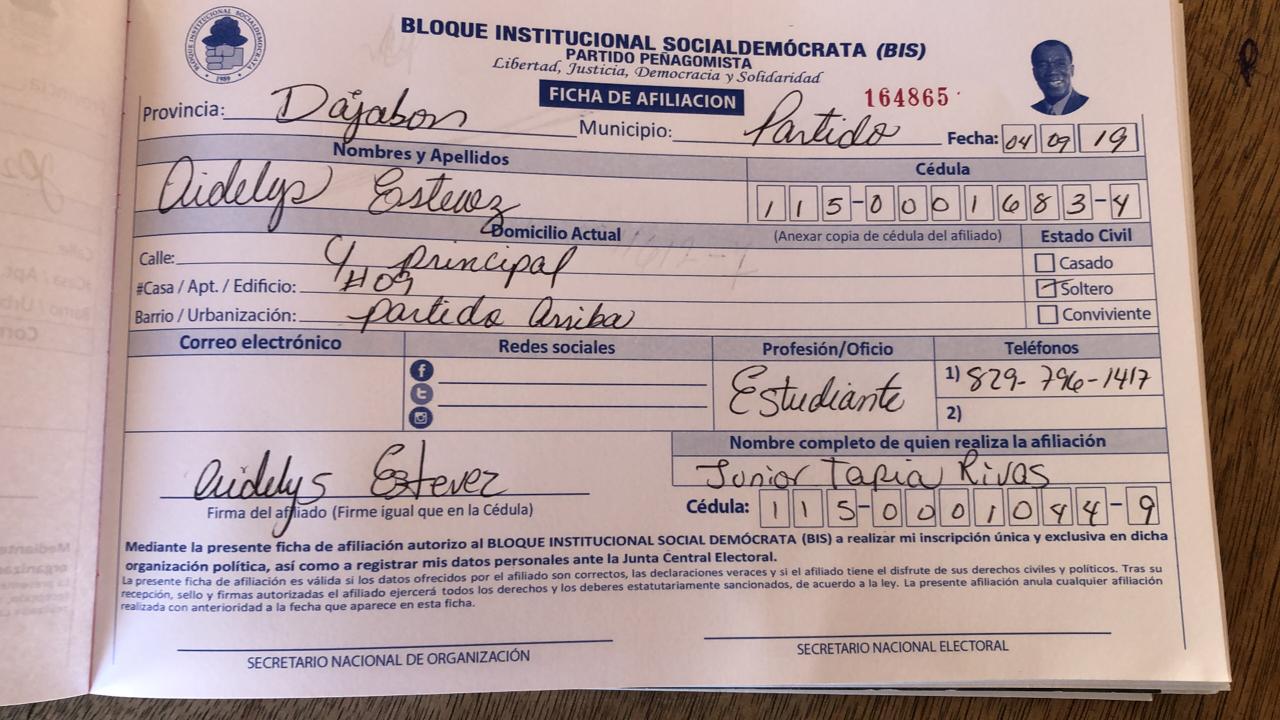 BLOQUE INSTITUCIONAL SOCIALDEMÓCRATA
1989
BLOQUE INSTITUCIONAL SOCIALDEMÓCRATA (BIS)
PARTIDO PEÑAGOMISTA
Libertad, Justicia, Democracia y Solidaridad
FICHA DE AFILIACION 164865
Provincia: Dajabon Municipio: Partido Fecha: 04 09 19
Nombres y Apellidos Cédula
Aidelys Estevez 115-0001683-4
Domicilio Actual (Anexar copia de cédula del afiliado) Estado Civil
Calle: C/ principal Casado
#Casa / Apt. / Edificio: #09 Soltero
Barrio / Urbanización: partido Arriba Conviviente
Correo electrónico Redes sociales Profesión/Oficio Teléfonos
Estudiante 1) 829-796-1417
2)
Nombre completo de quien realiza la afiliación
Aidelys Estevez Junior Tapia Rivas
Firma del afiliado (Firme igual que en la Cédula) Cédula: 115-0001044-9
Mediante la presente ficha de afiliación autorizo al BLOQUE INSTITUCIONAL SOCIAL DEMÓCRATA (BIS) a realizar mi inscripción única y exclusiva en dicha
organización política, así como a registrar mis datos personales ante la Junta Central Electoral.
La presente ficha de afiliación es válida si los datos ofrecidos por el afiliado son correctos, las declaraciones veraces y si el afiliado tiene el disfrute de sus derechos civiles y políticos. Tras su
recepción, sello y firmas autorizadas el afiliado ejercerá todos los derechos y los deberes estatutariamente sancionados, de acuerdo a la ley. La presente afiliación anula cualquier afiliación
realizada con anterioridad a la fecha que aparece en esta ficha.
SECRETARIO NACIONAL DE ORGANIZACIÓN SECRETARIO NACIONAL ELECTORAL